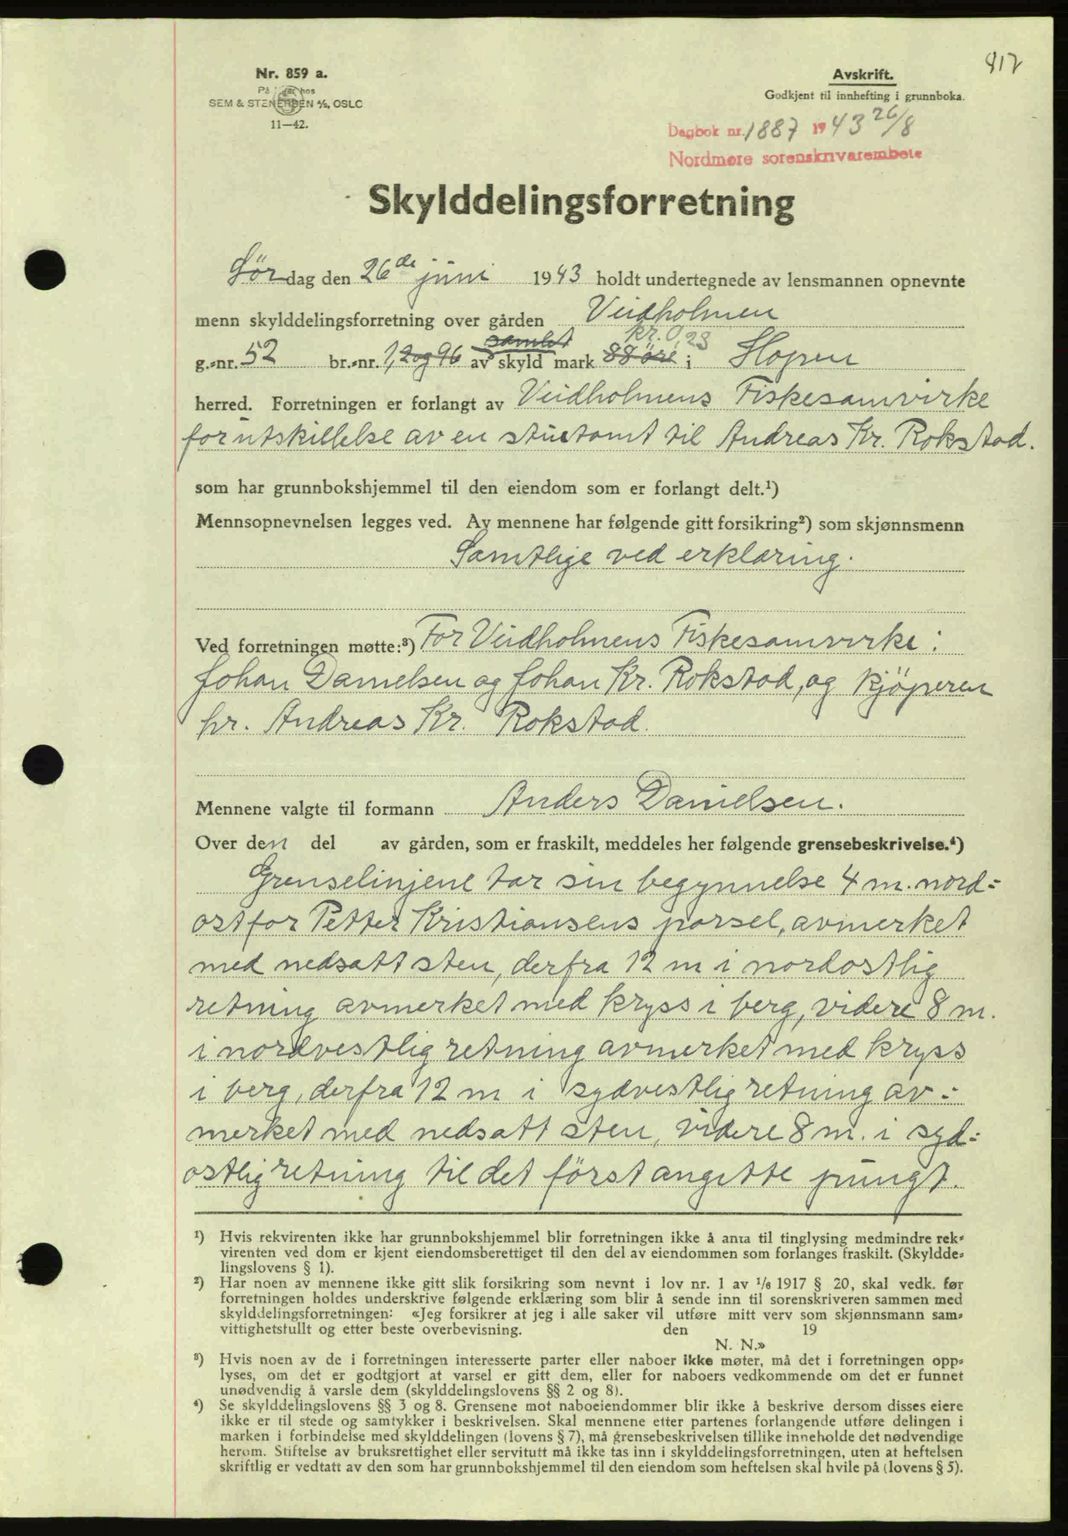 817
Nr. 859 a.
På lager hos
SEM & STENERSEN A/S, OSLO
11—42.
Avskrift.
Godkjent til innhefting i grunnboka.
Dagbok nr. 1887 1943 26/8
Nordmøre sorenskrivarembete
Skylddelingsforretning
Lördag den 26de juni 1943 holdt undertegnede av lensmannen opnevnte
menn skylddelingsforretning over gården Veidholmen
g.-nr. 52 br.-nr. 1, 2 og 96 samlet av skyld mark 88 øre kr. 0,23 i Hopen
herred. Forretningen er forlangt av Veidholmens Fiskesamvirke
for utskillelse av en stuetomt til Andreas Kr. Rokstad.
som har grunnbokshjemmel til den eiendom som er forlangt delt.¹)
Mennsopnevnelsen legges ved. Av mennene har følgende gitt forsikring²) som skjønnsmenn
Samtlige ved erklæring.
Ved forretningen møtte:³) For Veidholmens Fiskesamvirke:
Johan Danielsen og Johan Kr. Rokstad, og kjöperen
hr. Andreas Kr. Rokstad.
Mennene valgte til formann Anders Danielsen.
Over den del av gården, som er fraskilt, meddeles her følgende grensebeskrivelse.⁴)
Grenselinjene tar sin begynnelse 4 m. nord-
ost for Petter Kristiansens parsel, avmerket
med nedsatt sten, derfra 12 m i nordostlig
retning avmerket med kryss i berg, videre 8 m.
i nordvestlig retning avmerket med kryss
i berg, derfra 12 m i sydvestlig retning av-
merket med nedsatt sten, videre 8 m. i syd-
ostlig retning til det först angitte pungt.
¹) Hvis rekvirenten ikke har grunnbokshjemmel blir forretningen ikke å anta til tinglysing medmindre rek-
virenten ved dom er kjent eiendomsberettiget til den del av eiendommen som forlanges fraskilt. (Skyldde-
lingslovens § 1).
²) Har noen av mennene ikke gitt slik forsikring som nevnt i lov nr. 1 av ¹/₆ 1917 § 20, skal vedk. før
forretningen holdes underskrive følgende erklæring som blir å sende inn til sorenskriveren sammen med
skylddelingsforretningen: «Jeg forsikrer at jeg i alle saker vil utføre mitt verv som skjønnsmann sam-
vittighetsfullt og etter beste overbevisning. den 19
N. N.»
³) Hvis noen av de i forretningen interesserte parter eller naboer ikke møter, må det i forretningen opp-
lyses, om det er godtgjort at varsel er gitt dem, eller for naboers vedkommende om det er funnet
unødvendig å varsle dem (skylddelingslovens §§ 2 og 8).
⁴) Se skylddelingslovens §§ 3 og 8. Grensene mot naboeiendommer blir ikke å beskrive dersom disses eiere
ikke er til stede og samtykker i beskrivelsen. Skal mennene etter partenes forlangende utføre delingen i
marken i forbindelse med skylddelingen (lovens § 7), må grensebeskrivelsen tillike inneholde det nødvendige
herom. Stiftelse av bruksrettighet eller servitutt må ikke tas inn i skylddelingsforretningen, uten at heftelsen
skriftlig er vedtatt av den som har grunnbokshjemmel til den eiendom som heftelsen skal hvile på (lovens § 5).